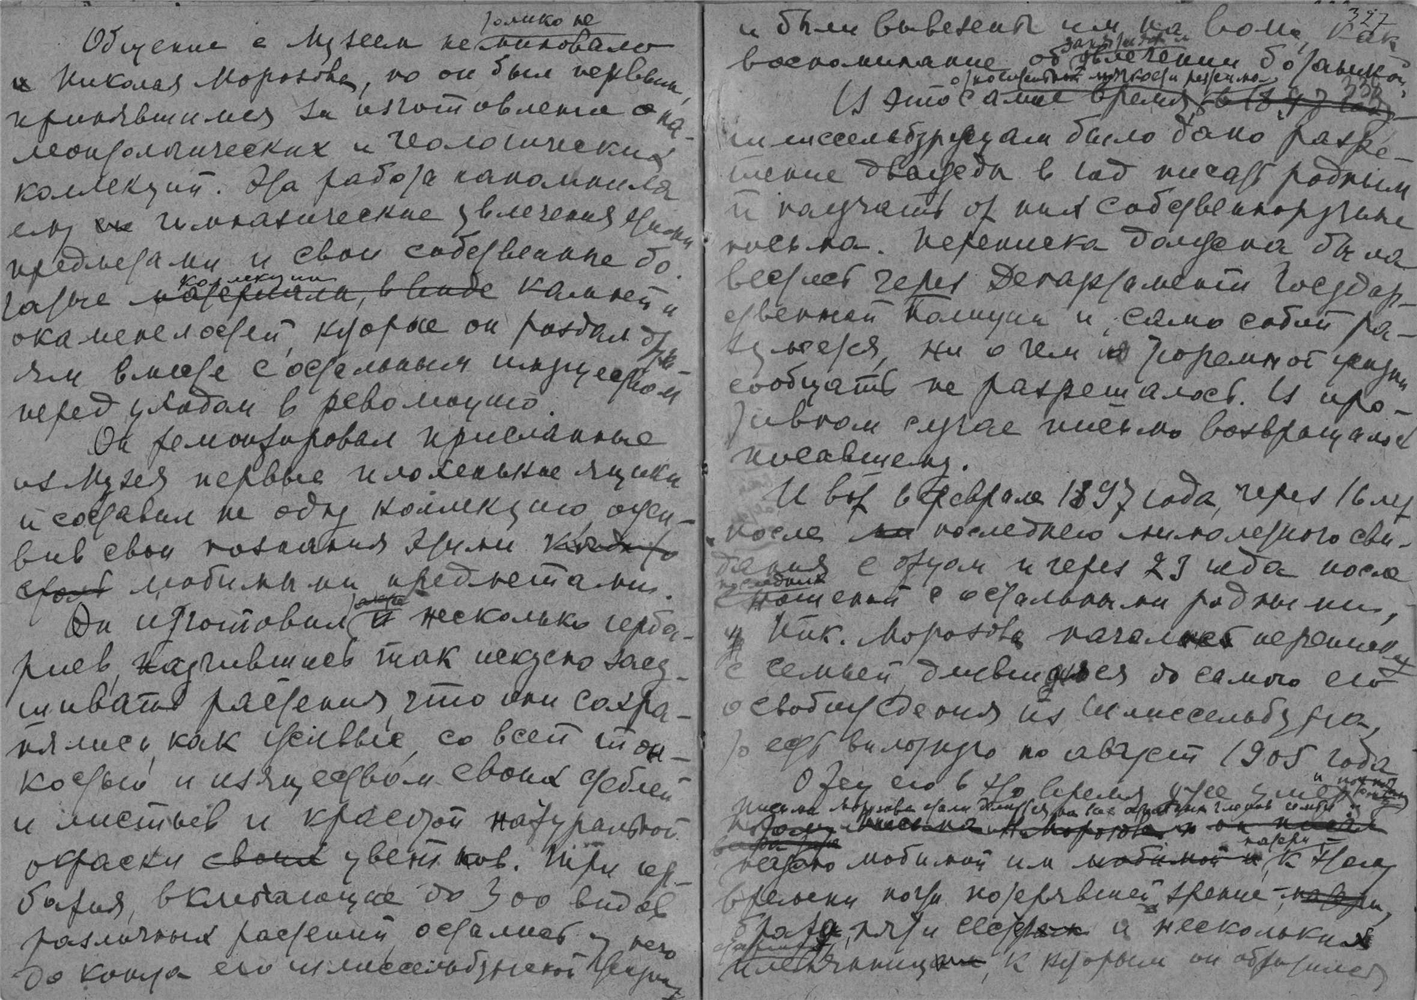 только не
Общение с Музеем не миновало
и Николая Морозова, но он был первым,
принявшимся за изготовление па-
леонтологических и геологических
коллекций. Эта работа напомнила
ему гимназические увлечения этими
предметами и свои собственные бо-
гатые коллекции материалы, в виде камней и
окаменелостей, которые он раздал друзь-
ям вместе с остальным имуществом
перед уходом в революцию.
Он ремонтировал присланные
из Музея первые плохенькие ящики
и составил не одну коллекцию, ожи-
вив свои познания этими когда-то
столь любимыми предметами.
Он изготовил также и несколько герба-
риев, научившись так искусно засу-
шивать растения, что они сохра-
нялись, как живые, со всей тон-
костью и изяществом своих стеблей
и листьев и красотой натуральной
окраски своих цветков. Три гер-
бария, включающие до 300 видов
различных растений, остались у него
до конца его шлиссельбургской жизни
327
и были вывезены им на волю, как
воспоминание об увлечении ботаникой.
относительной мягкости режима
В это самое время в 1897 году
шлиссельбуржцам было дано разре-
шение дважды в год писать родным
и получать от них собственноручные
письма. Переписка должна была
вестись через Департамент Государ-
ственной Полиции и, само собой ра-
зумеется, ни о чем из тюремной жизни
сообщать не разрешалось. В про-
тивном случае письмо возвращалось
писавшему.
И вот в феврале 1897 года, через 16 лет
после последнего мимолетного сви-
дания с отцом и через 23 года после
последних
сношений с остальными родными,
у Ник. Морозова началась переписка
с семьей длившаяся до самого его
освобождения из Шлиссельбурга,
то есть вплотную по август 1905 года
Отец его в это время уже умер и
письма Морозова
матери
любимой им любимой к этому
времени почти потерявшей зрение,
брата, пяти сестер и нескольких
племянниц, к которым он обратился